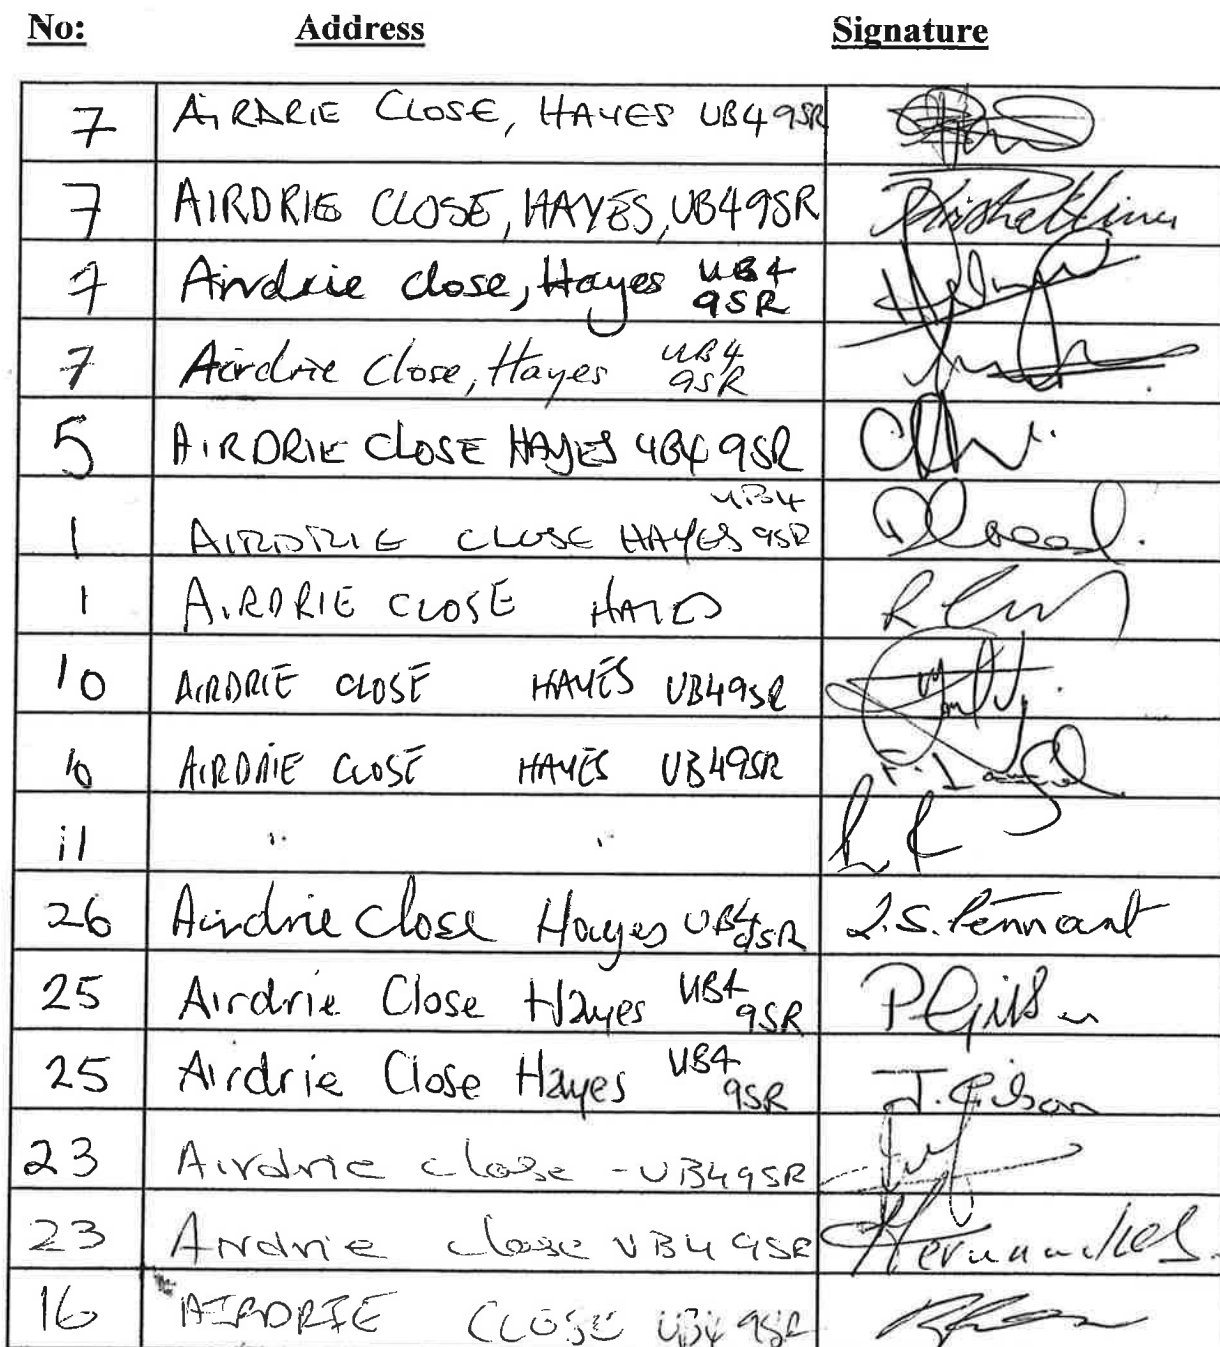 No: Address Signature
7 AIRDRIE CLOSE, HAYES UB4 9SR
7 AIRDRIE CLOSE, HAYES, UB4 9SR
7 Airdrie close, Hayes UB4 9SR
7 Airdrie Close, Hayes UB4 9SR
5 AIRDRIE CLOSE HAYES UB4 9SR
1 AIRDRIE CLOSE HAYES UB4 9SR
1 AIRDRIE CLOSE HAYES
10 AIRDRIE CLOSE HAYES UB4 9SR
10 AIRDRIE CLOSE HAYES UB4 9SR
11 " "
26 Airdrie Close Hayes UB4 9SR J.S. Pennant
25 Airdrie Close Hayes UB4 9SR P Gibson
25 Airdrie Close Hayes UB4 9SR J. Gibson
23 Airdrie close - UB4 9SR
23 Airdrie close UB4 9SR
16 AIRDRIE CLOSE UB4 9SR